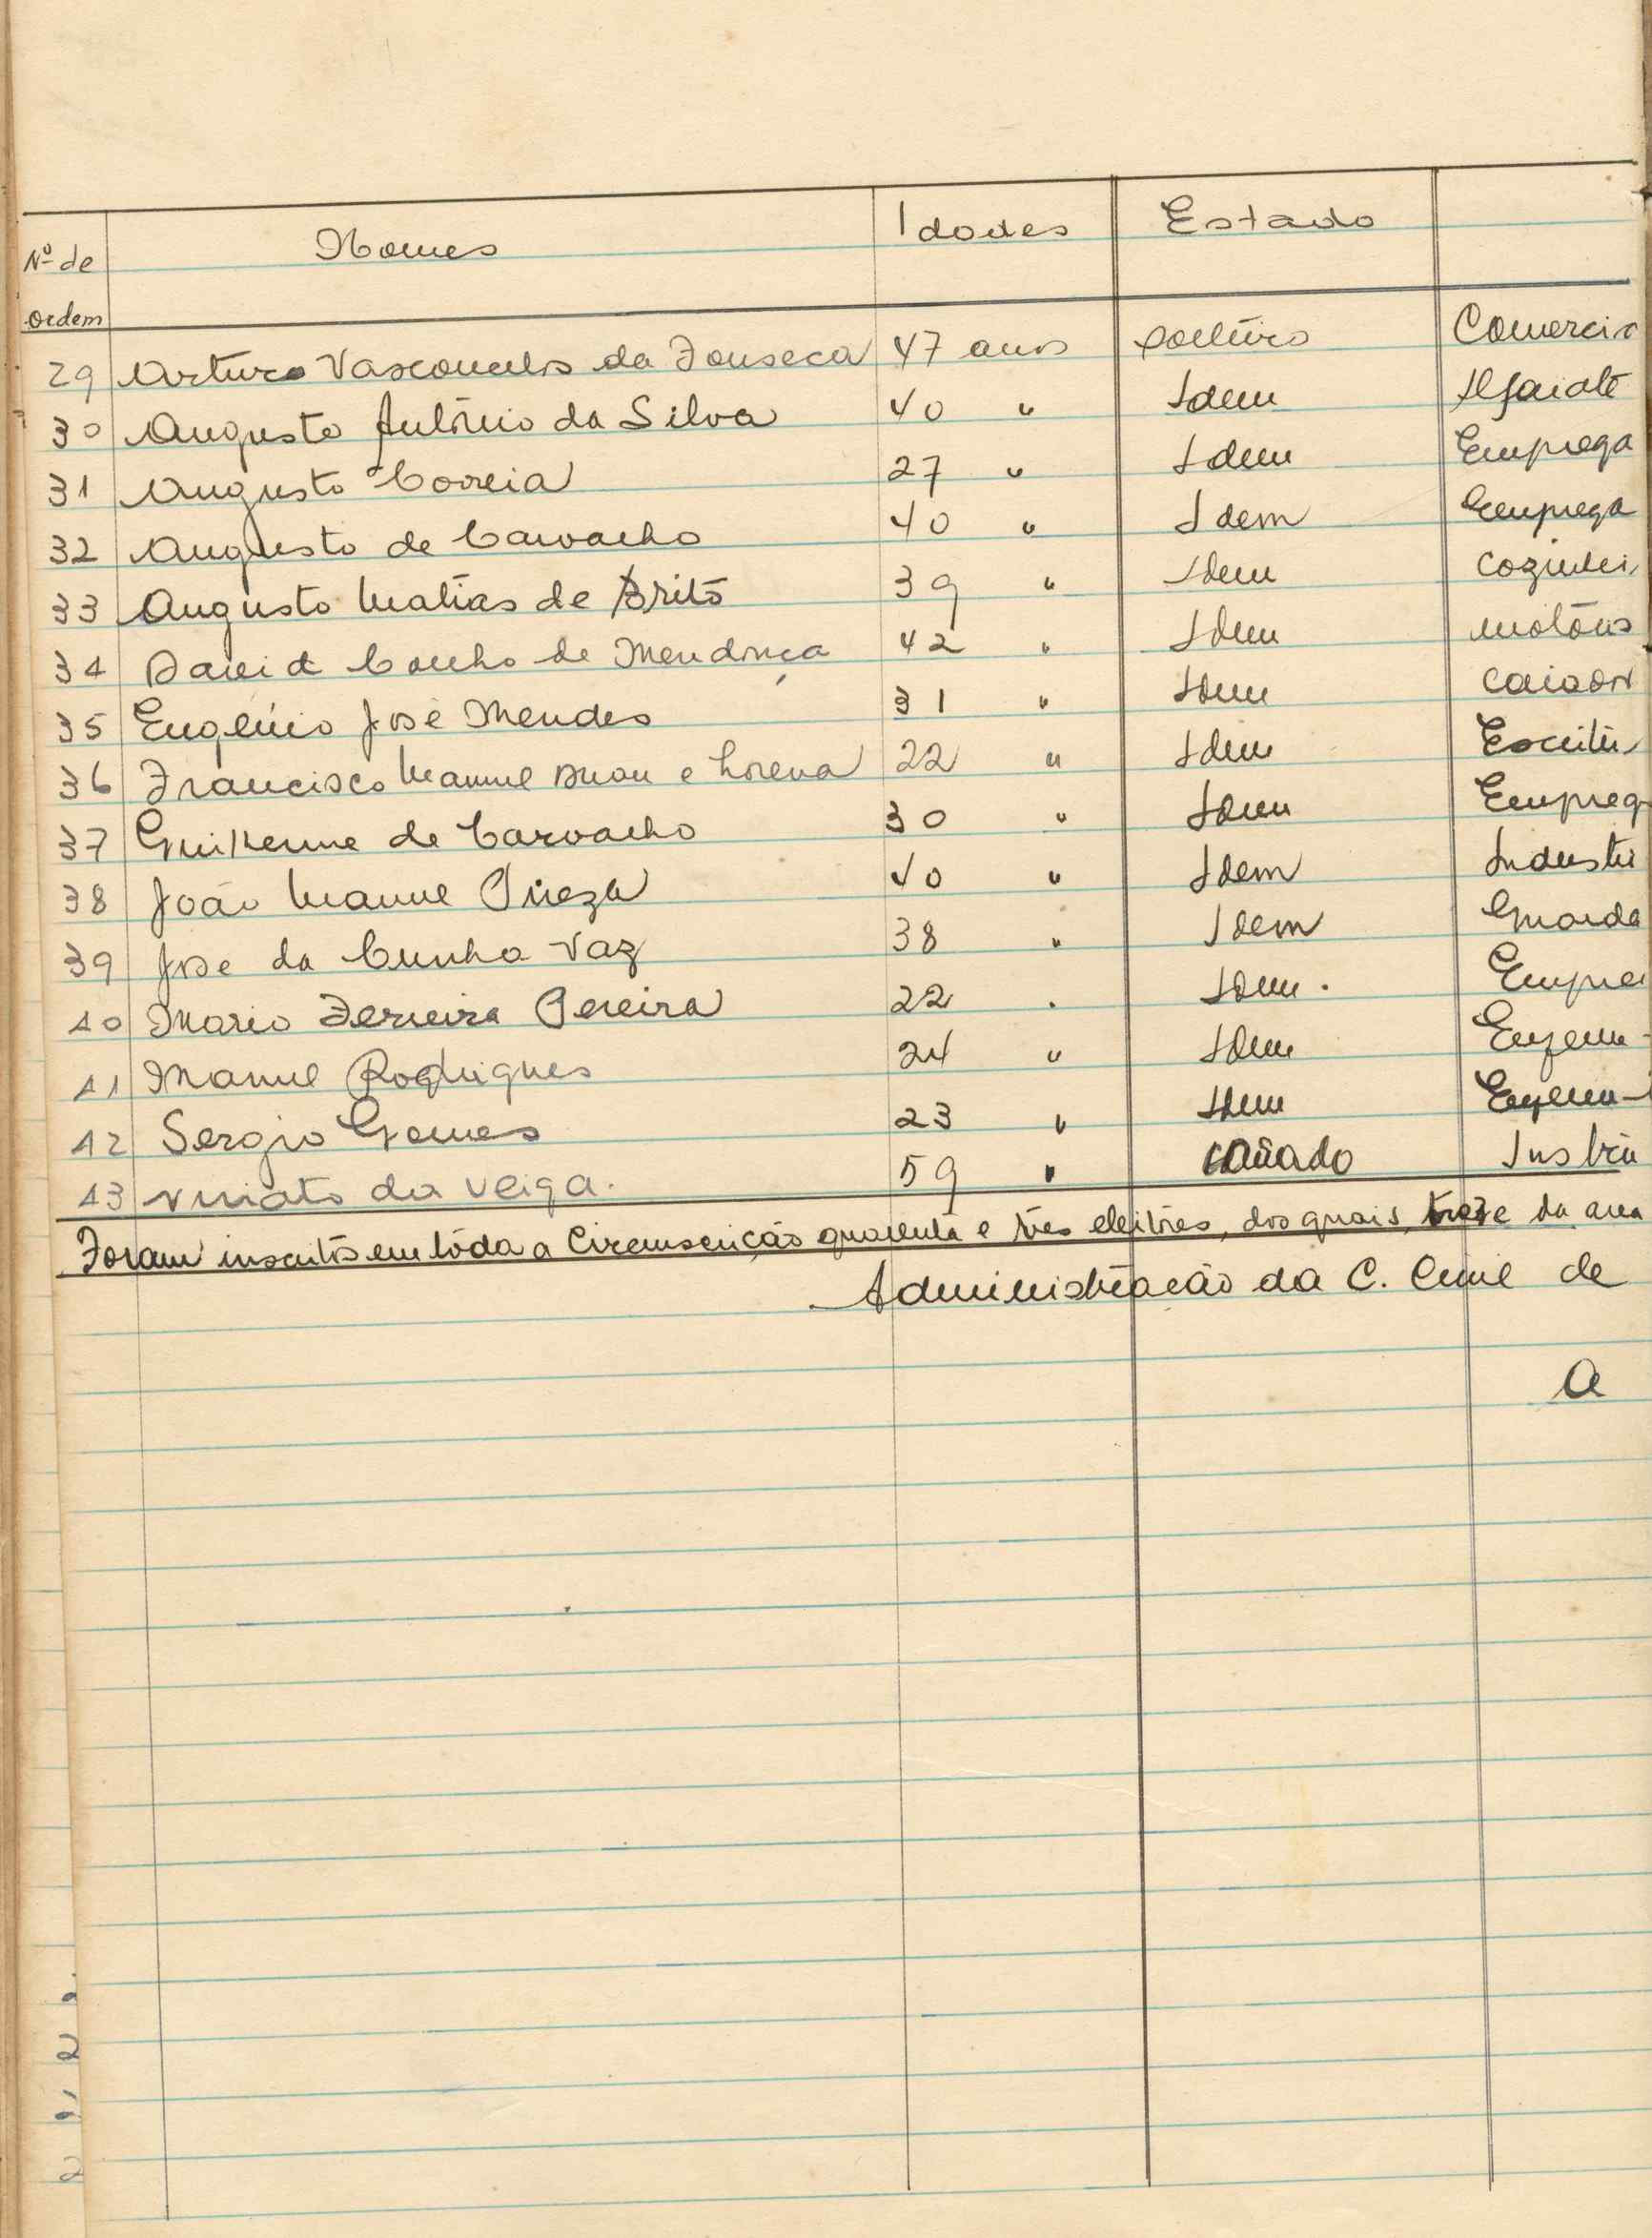 Nº de ordem Nomes Idades Estado
29 Arturo Vasconcelos da Fonseca 47 anos solteiro Comercia
30 Augusto António da Silva 40 " Idem Alfaiate
31 Augusto Correia 27 " Idem Emprega
32 Augusto de Carvalho 40 " Idem Emprega
33 Augusto Matias de Brito 39 " Idem Cozinhei
34 David Coelho de Mendonça 42 " Idem motoris
35 Eugénio José Mendes 31 " Idem caiador
36 Francisco Manuel e Lorena 22 " Idem Escritu
37 Guilherme de Carvalho 30 " Idem Empreg
38 João Manuel 40 " Idem Industri
39 José da Cunha Vaz 38 " Idem Guarda
40 Mario Ferreira Pereira 22 " Idem. Empre
41 Manuel Rodrigues 24 " Idem Enferm-
42 Sergio Gomes 23 " Idem Enferm-
43 Viriato da Veiga. 59 " casado
Foram inscritos em tôda a Circunscrição quarenta e três eleitores, dos quais, treze da area
Administração da C. Civil de
O